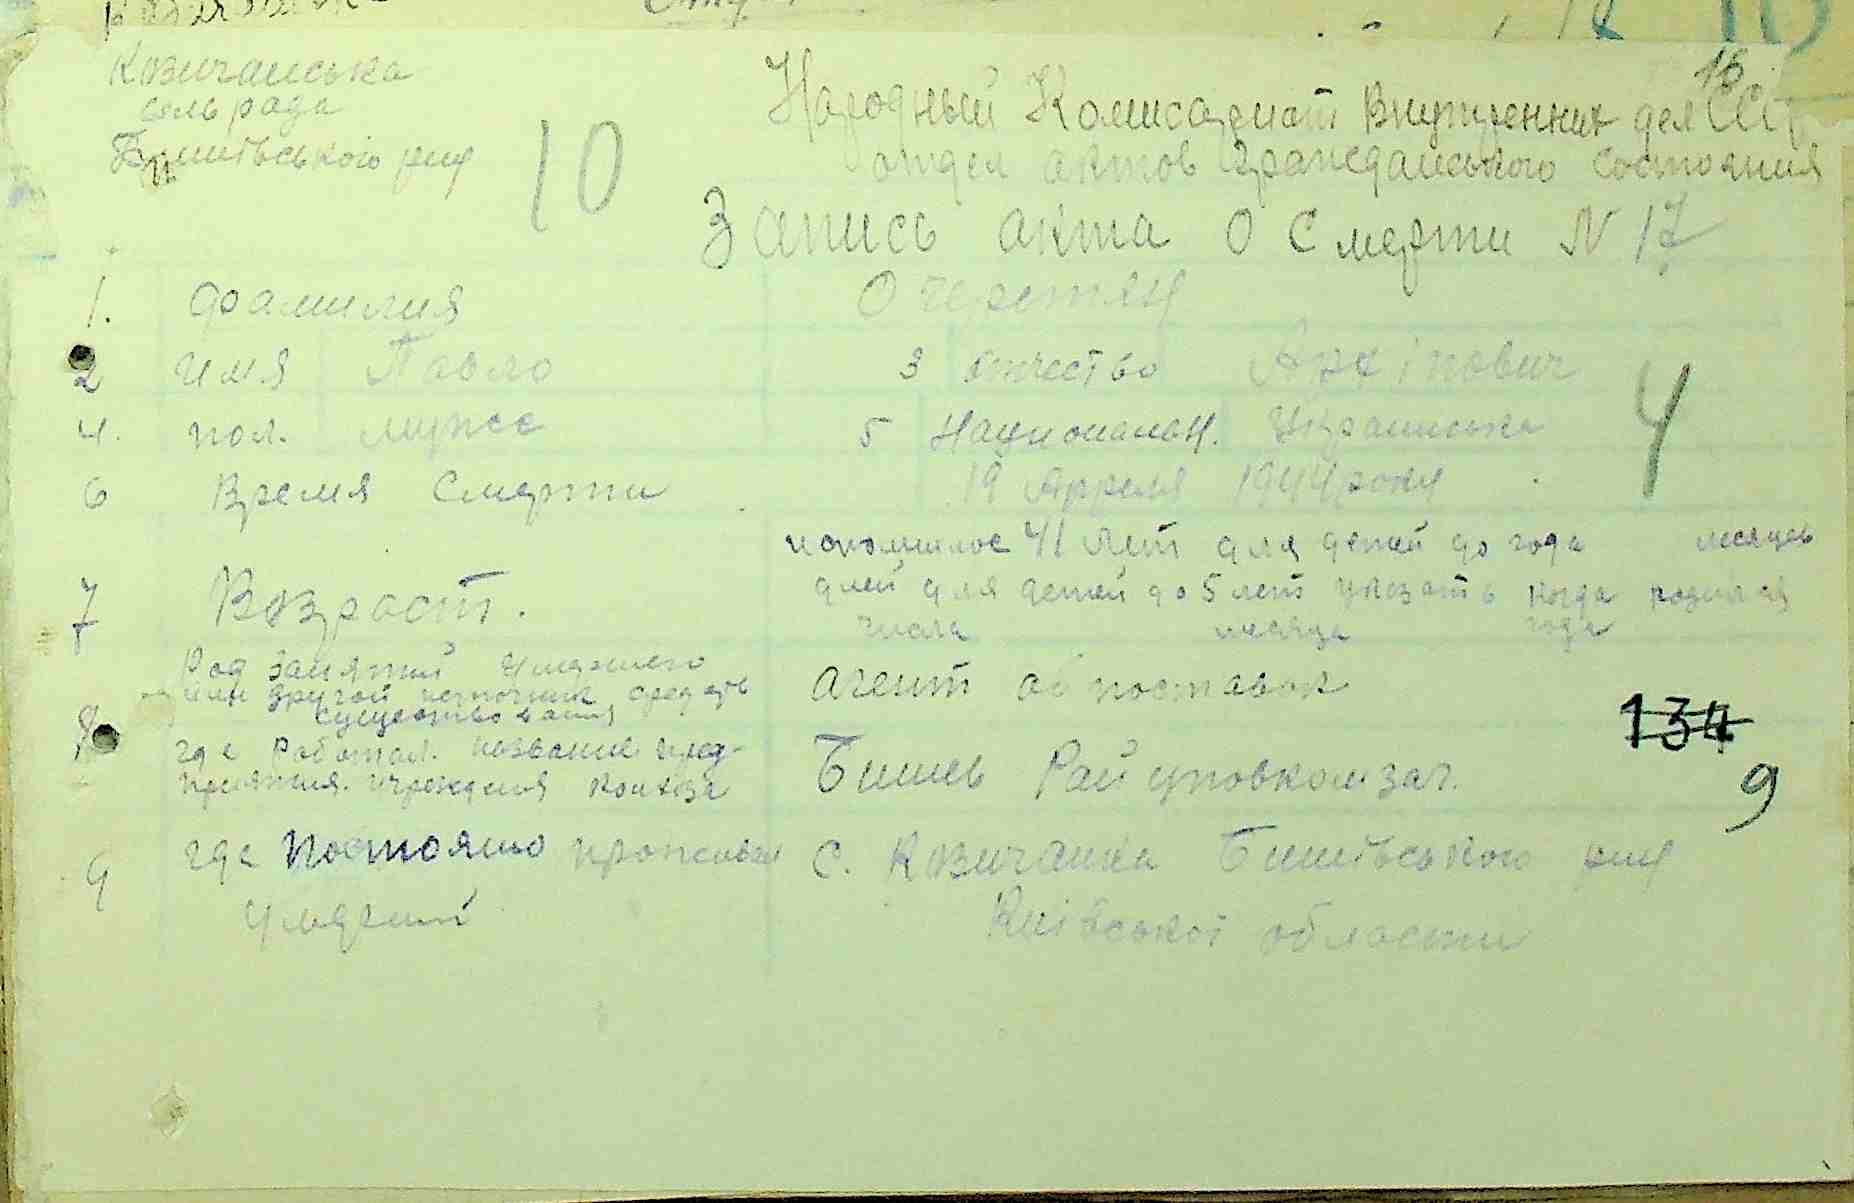 Козичанська
сель рада
Бишівського р-ну
10
16
Народный Комисариат Внутренних дел СССР
отдел актов Гражданського состояния
Запись акта о смерти N 17
1. Фамилия Очеретян
2 имя Павло 3 отчество Архіпович
4
4. пол. мужс 5 Национальн. Украинська
6 Время Смерти 19 Апреля 1944 року
7 Возраст. исполнилос 41 лет для детей до года месяцев
дней для детей до 5 лет указать когда родился
числа месяца года
8 Род занятий умершего
или другой источник средств
существования
агент по поставок
134
где работал. название пред-
приятия. учреждения колхоза
Бишев Рай уповкомзаг.
9
9 где постояно проживал
умерший
с. Козичанка Бишівського р-ну
Київської области